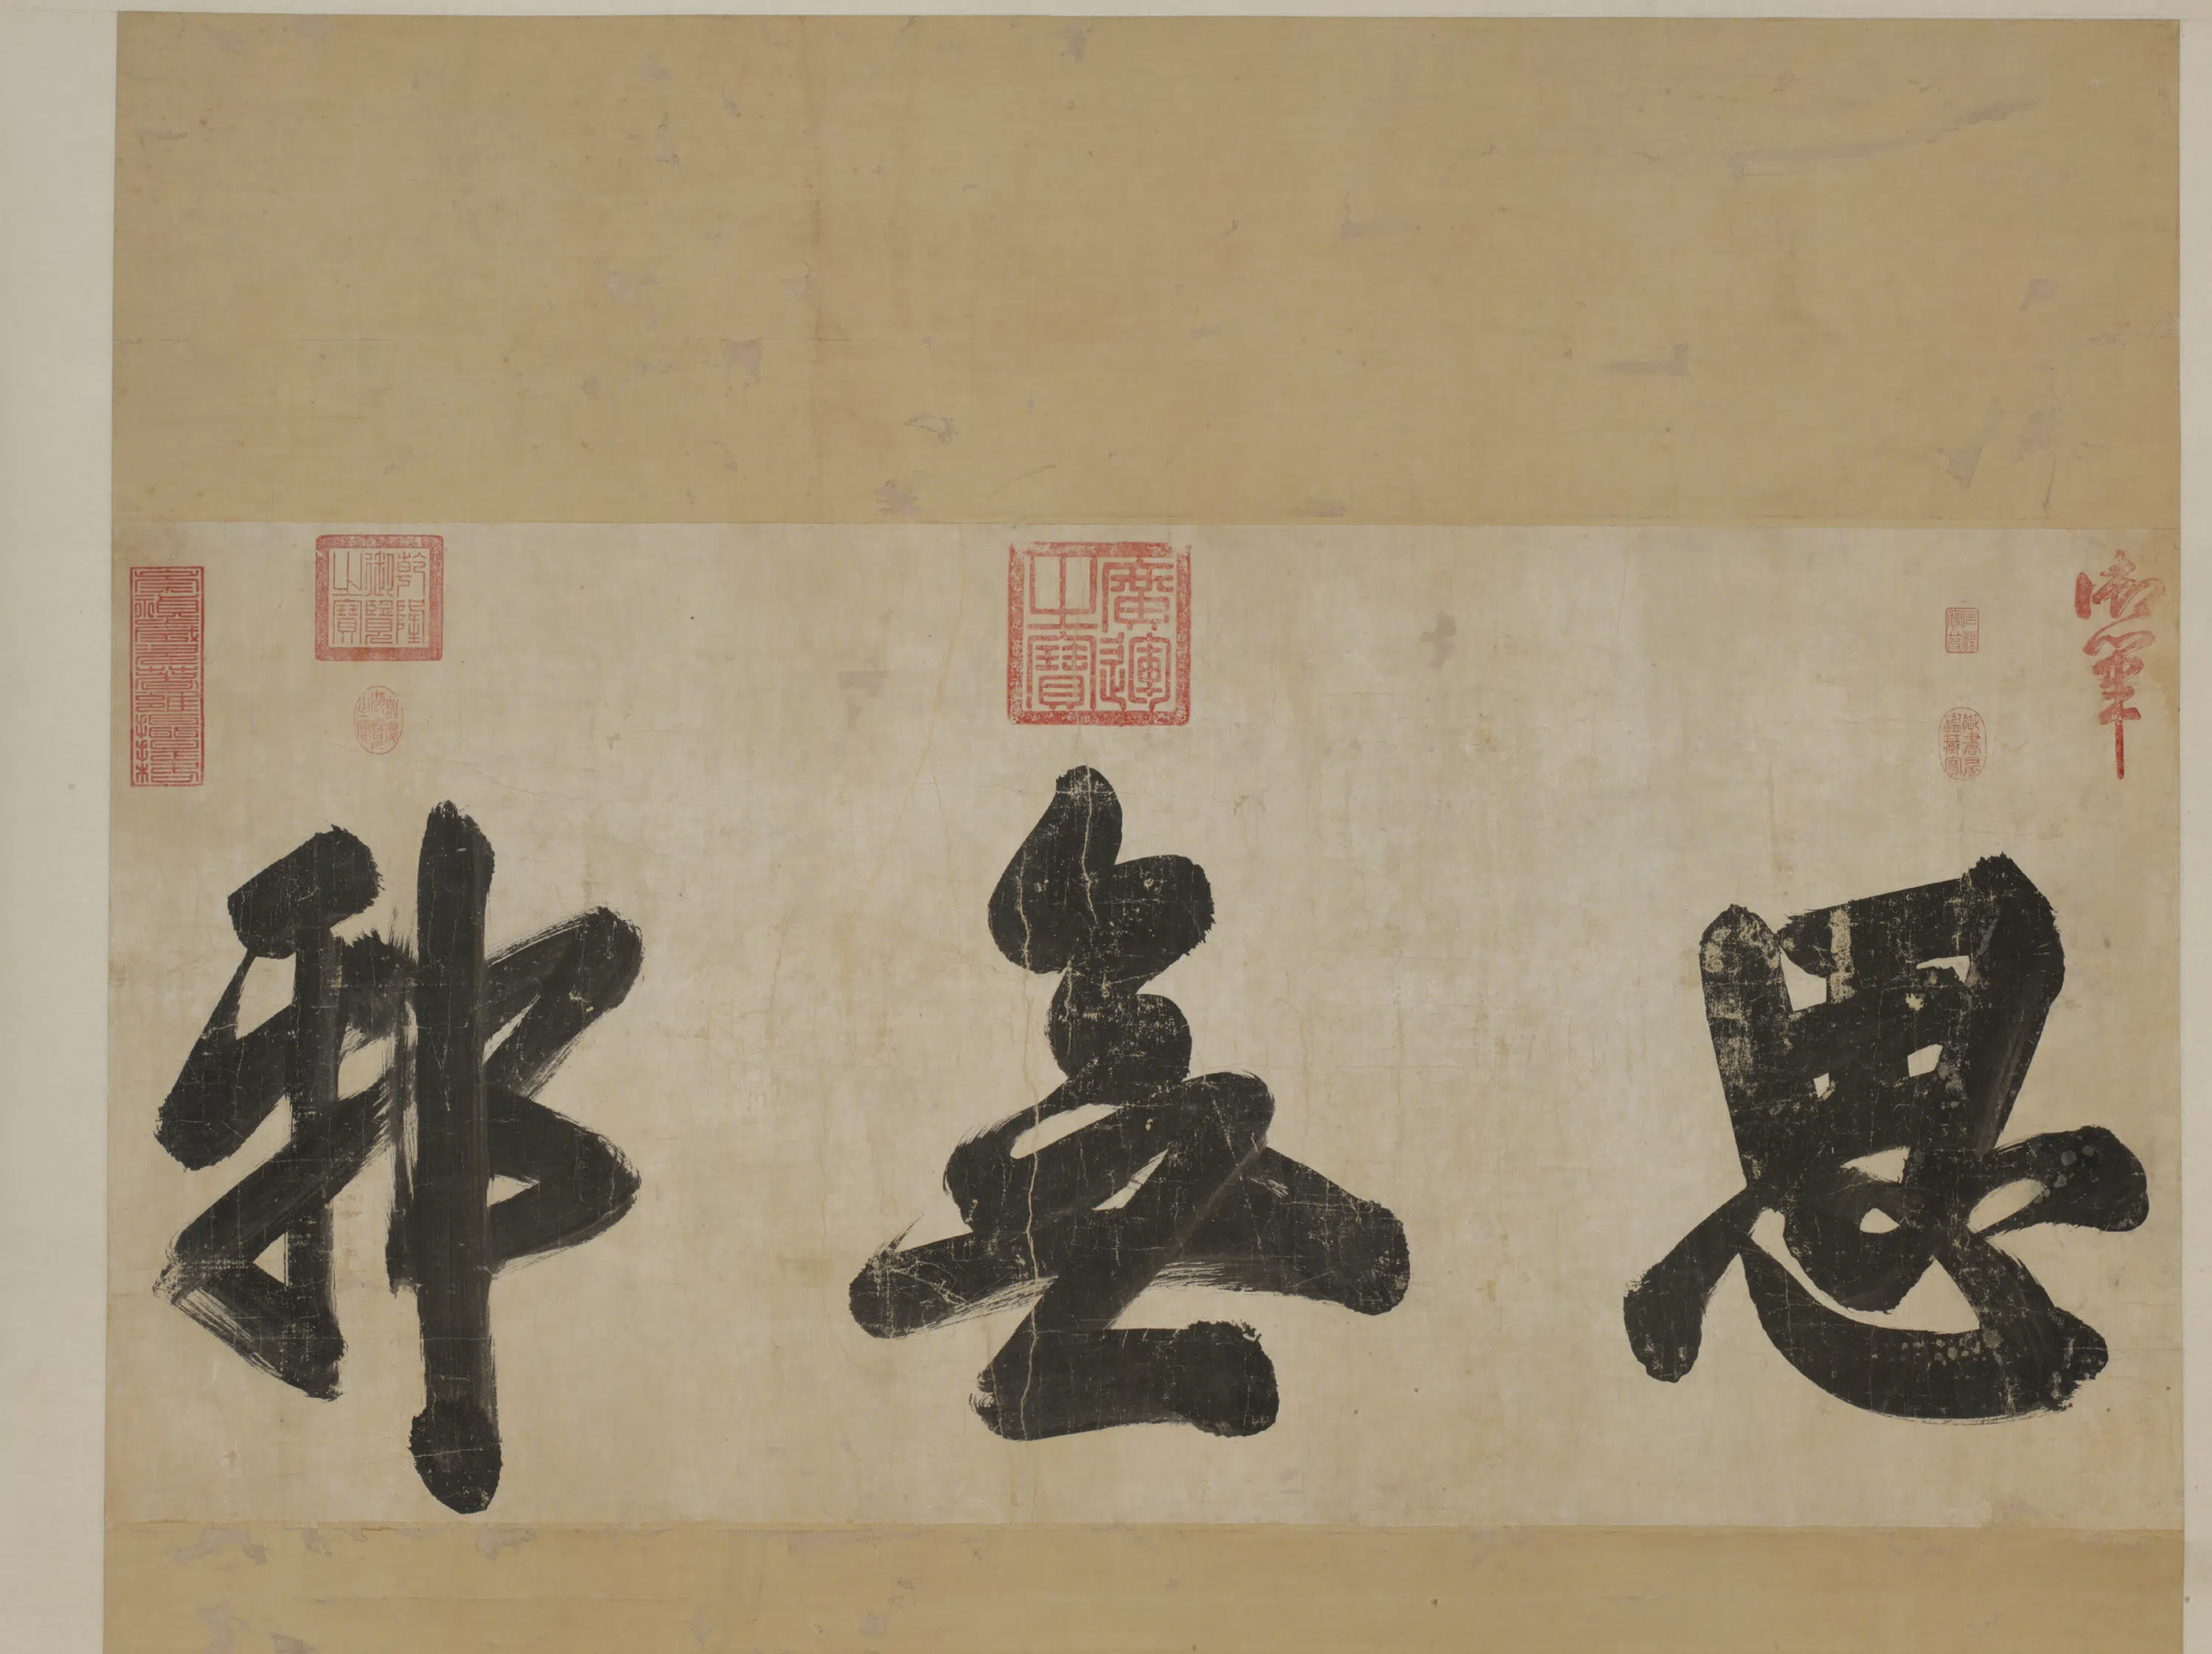 御筆
思無邪
廣運之寶
乾隆御覽之寶